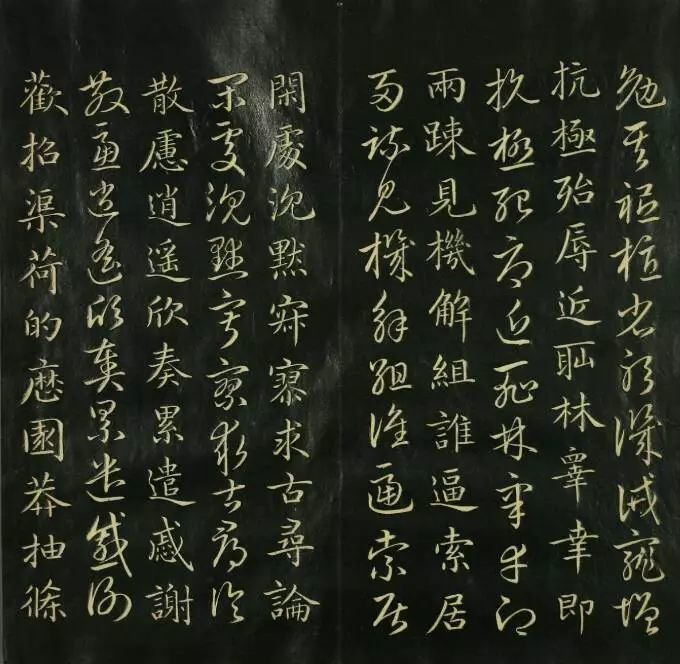 勉其祗植省躬譏誡寵增
抗極殆辱近耻林睾幸即
抗極殆辱近耻林睾幸即
兩踈見機解組誰逼索居
兩踈見機解組誰逼索居
閑處沉默寂寥求古尋論
閑處沉默寂寥求古尋論
散慮逍遥欣奏累遣慼謝
散慮逍遥欣奏累遣慼謝
歡招渠荷的歷園莽抽條